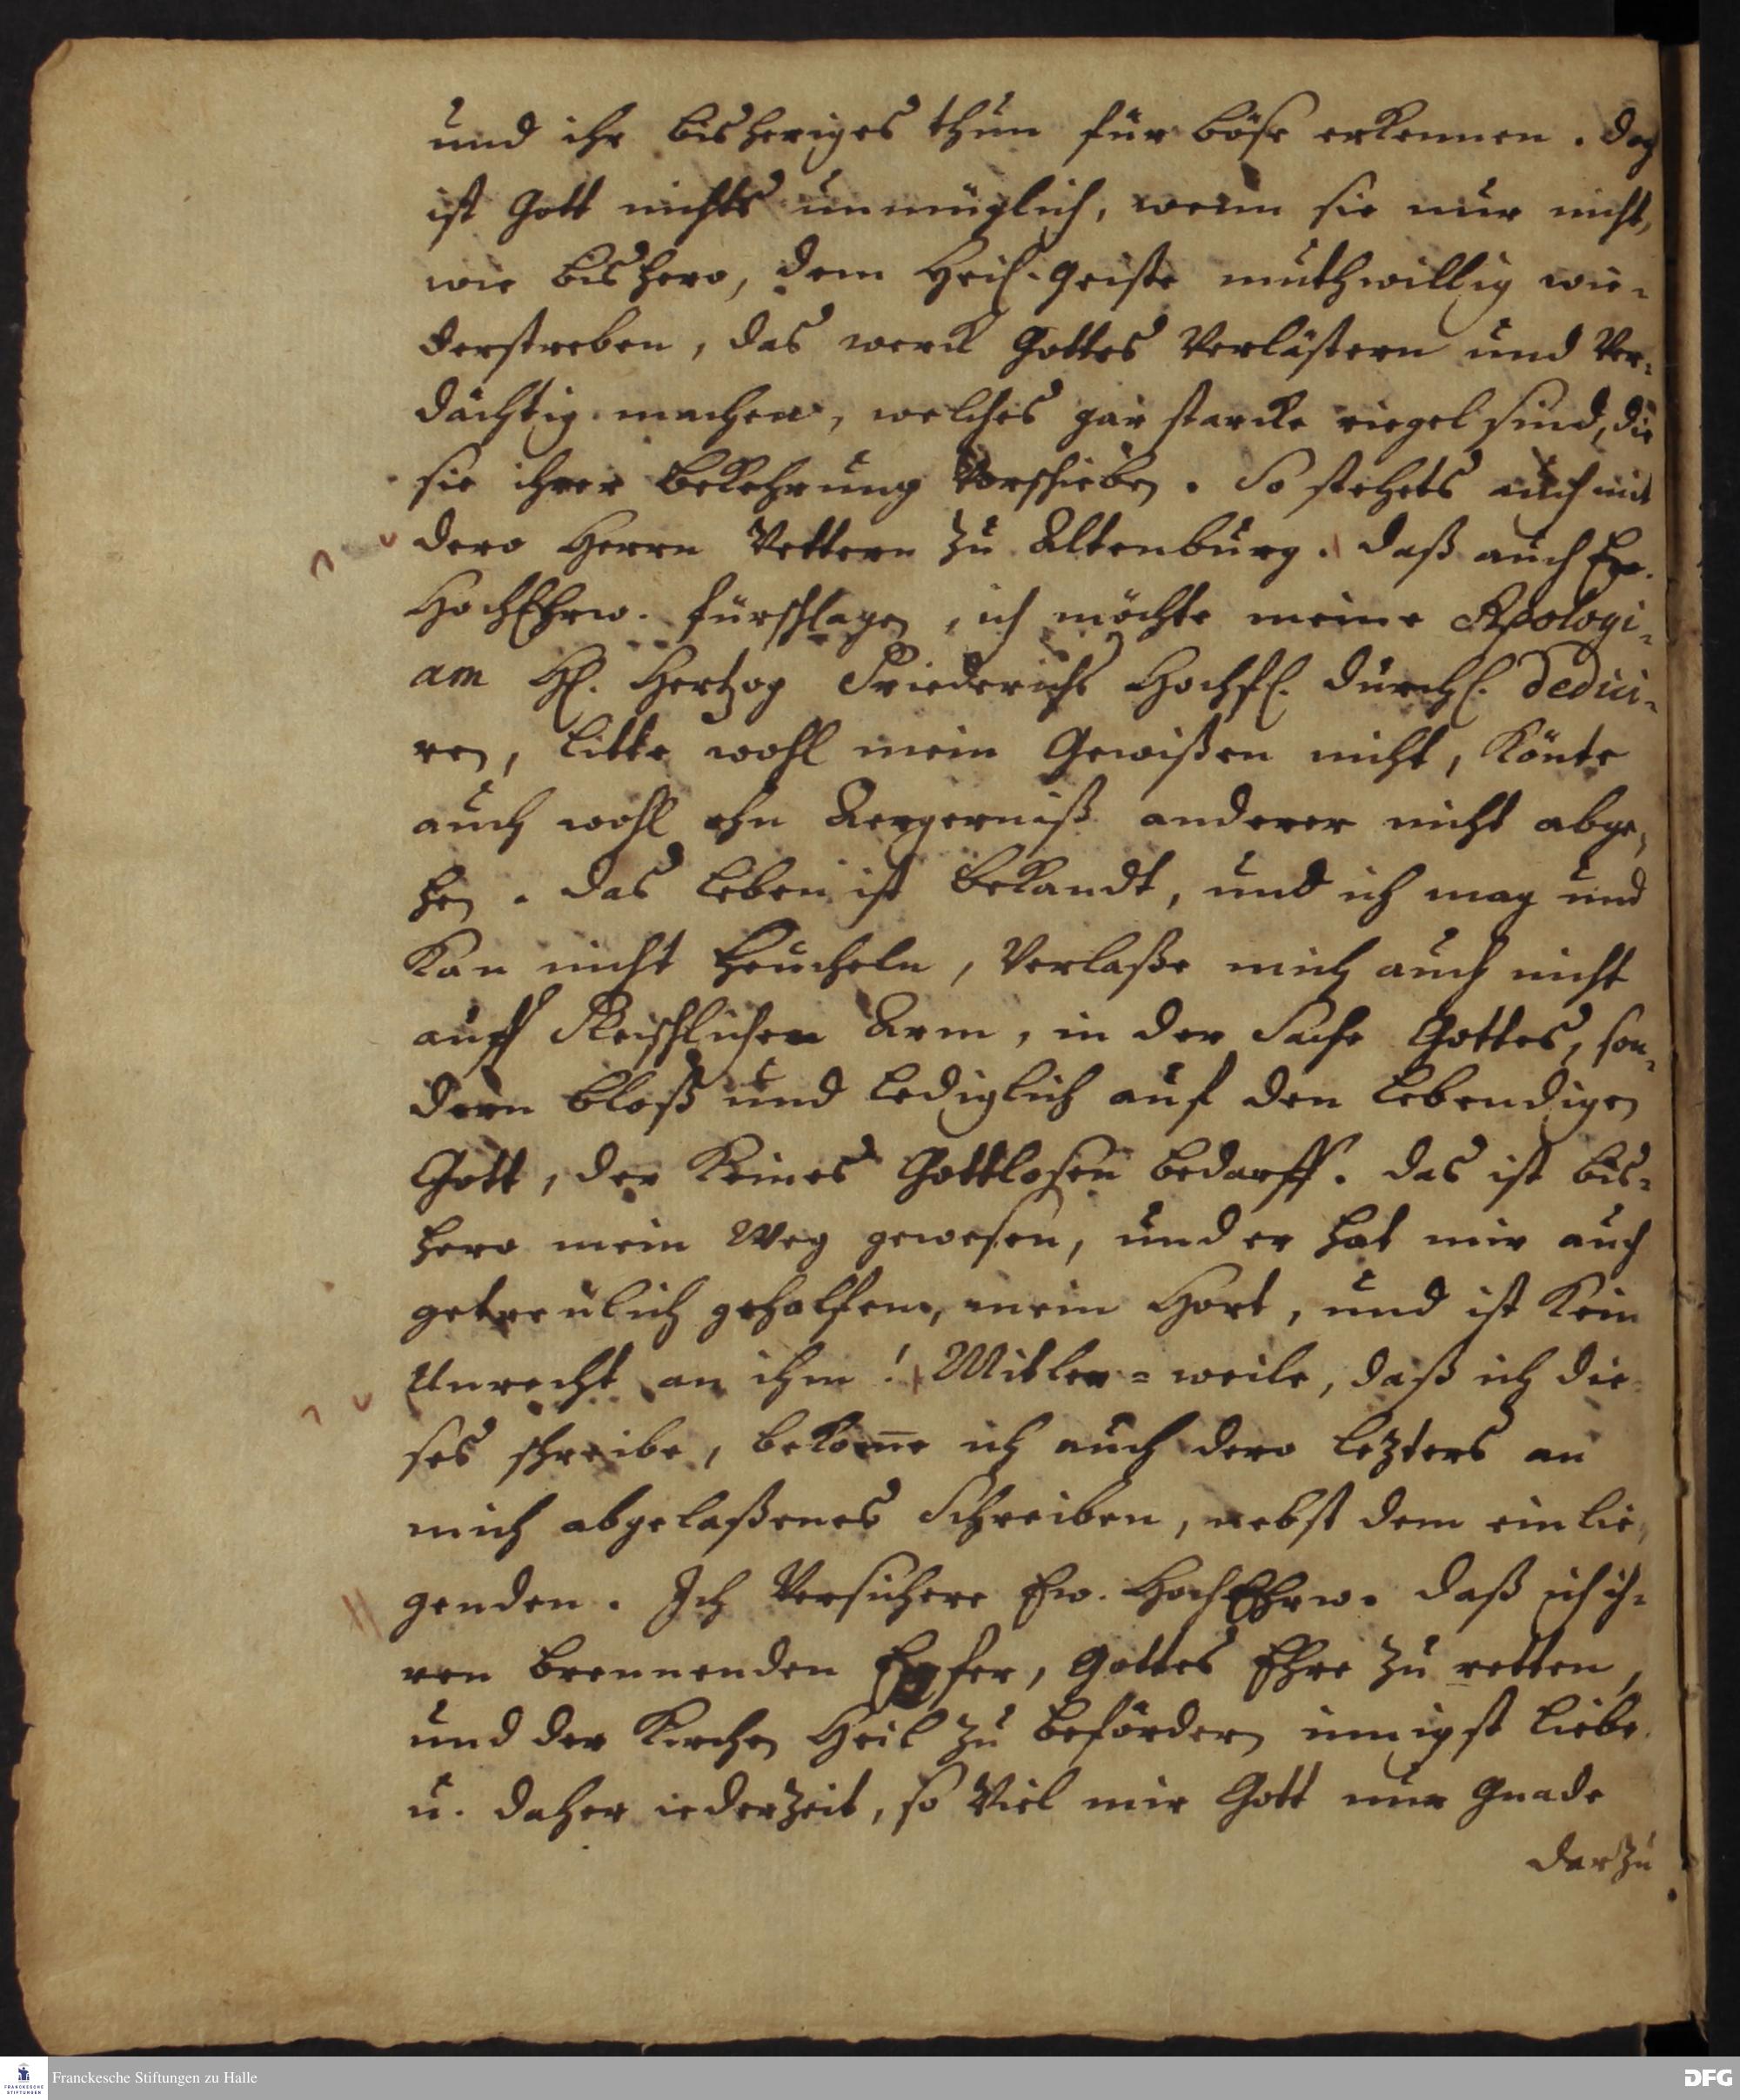 und ihr bisheriges thun für böse erkennen. doch
ist Gott nichts unmüglich, wenn sie nur nicht,
wie bishero, dem Heil. Geiste muthwillig wie-
derstreben, das werck Gottes Verlästern und Ver-
dächtig machen, welches gar starcke riegel sind, die
sie ihrer bekehrung Vorschieben. So stehets auch mit
dero Herrn Vettern zu Altenburg. daß auch Ew.
HochEhrw. fürschlagen, ich möchte meine Apologi-
am H. Hertzog Friederichs Hochfl. durchl. dedici-
ren, litte wohl mein Gewißen nicht, könte
auch wohl ohn Aergerniß anderer nicht abge-
hen. das leben ist bekandt, und ich mag und
kan nicht heucheln, Verlaße mich auch nicht
auff Fleischlichen Arm, in der Sache Gottes, son-
dern bloß und lediglich auf den lebendigen
Gott, der keines Gottlosen bedarff. das ist bis-
hero mein Weg gewesen, und er hat mir auch
getreulich geholffen, mein Hort, und ist kein
Unrecht an ihm! Mitler-weile, daß ich die-
ses schreibe, bekom̄e ich auch dero letzters an
mich abgelaßenes Schreiben, nebst dem einlie-
genden. Ich Versichere Ew. HochEhrw. daß ich ih-
ren brennenden Eyfer, Gottes Ehre zu retten,
und der Kirchen Heil zu befördern innigst liebe
u. daher iederzeit, so Viel mir Gott nur Gnade
darzu
Franckesche Stiftungen zu Halle
FRANCKESCHE
STIFTUNGEN
DFG